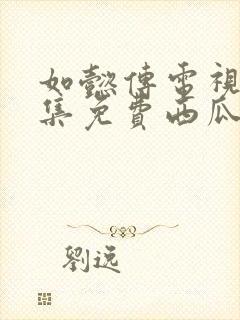 如懿傳電視
集免費西瓜
劉逸